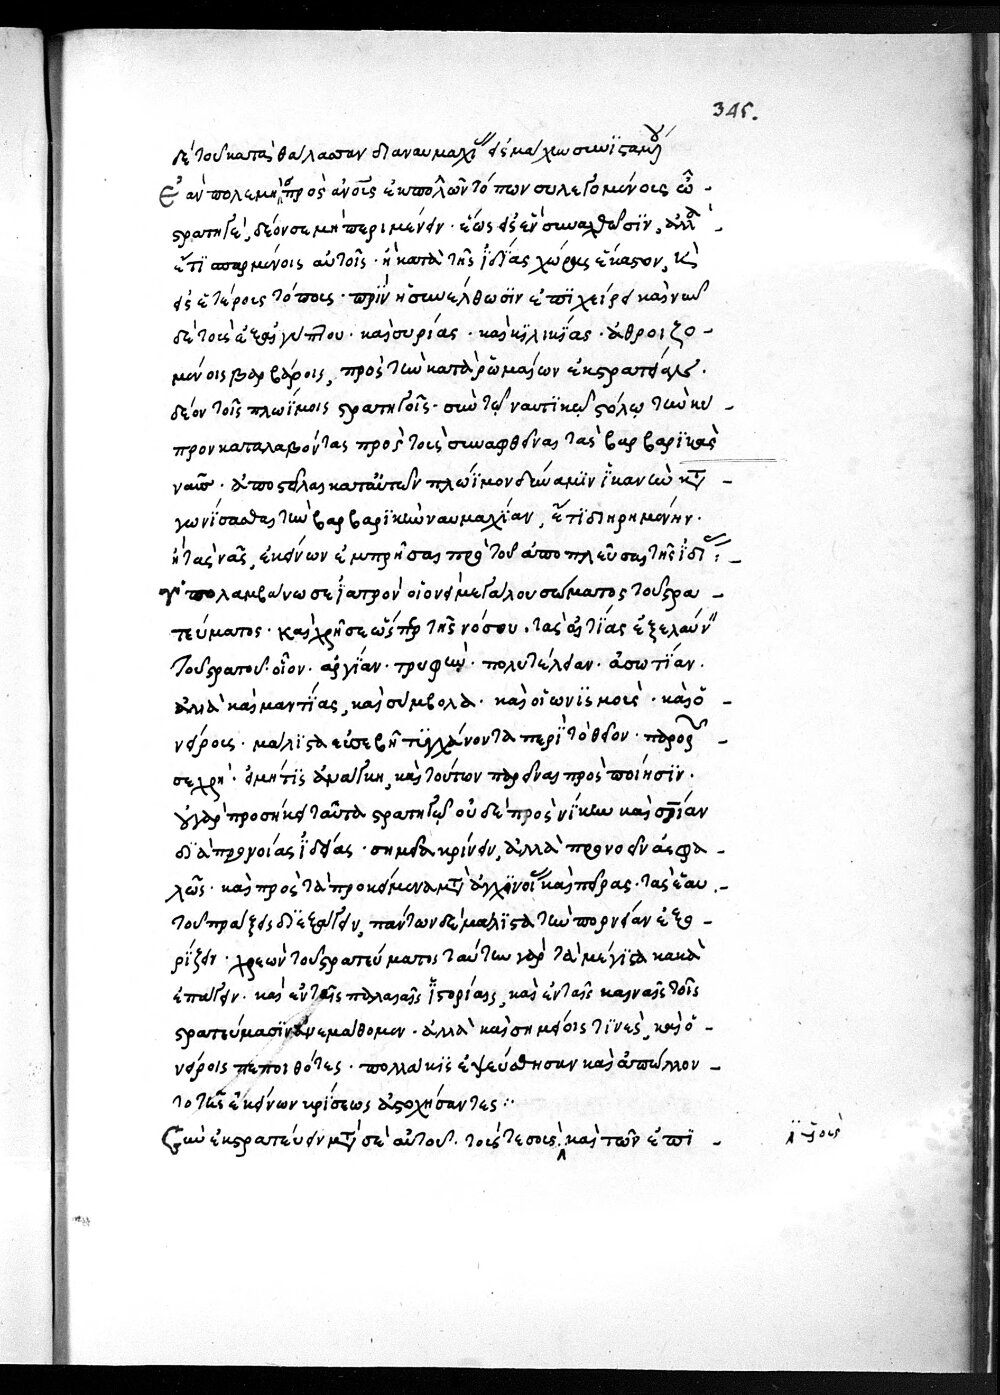 345.
δὲ τοὺς κατὰ θάλασσαν διὰ ναυμαχίας εἰ μαχίω συνίστασαι
Ἐὰν πολεμῇ πρὸς ἀνοῖς ἐκ πολλῶν τόπων συλεγομένοις ὦ –
στρατηγέ, δέον σε μὴ περιμένειν· ἕως εἰς ἓν συναχθῶσϊν, ἀλλ' –
ἔτϊ σπαρμένοις αὐτοῖς· ἢ κατὰ τῆς ἰδίας χώρας ἕκαστον, κὶ
εἰς ἑτέροις τόποις· πρϊν ἢ συνέλθωσϊν ἐπϊχείρει καὶ νῦν
δὲ τοῖς ἐξ αἰγύπτου· καὶ συρίας· καὶ κϊλικϊας· ἀθροιζο –
μένοις βαρβάροις, πρὸς τὴν κατὰ ῥωμαίων ἐκστρατείαν·
δέον τοῖς πλωίμοις στρατηγοῖς· σὺν τῷ ναυτϊκῷ στόλῳ τὴν κύ –
προν καταλαβόντας πρὸ τοῦ συναφθῆναι τὰς βαρβαρϊκὰς
ναῦς· ἀποστεῖλαι κατ' αὐτῶν πλωίμον δύναμϊν ἱκανὴν κτ –
γωνίσασθαι τὴν βαρβαρϊκὴν ναυμαχίαν, ἔτϊ διῃρημένην·
ἢ τὰς ναῦς ἐκείνων ἐμπρῆσαι πρὸ τοῦ ἀποπλεῦσαι τῆς ἰδίας –
Ὑπολαμβάνω σε ἰατρὸν οἱονεὶ μεγάλου σώματος τοῦ στρα –
τεύματος· καὶ χρή σε ὥσπερ τῆς νόσου· τὰς αἰτϊας ἐξελαύνειν
τοῦ στρατοῦ· οἷον· ἀργίαν· τρυφὴν· πολυτέλειαν· ἀσωτϊαν·
ἀλλὰ καὶ μαντϊας, καὶ σύμβολα· καὶ οἰωνϊσμοὺς· καὶ ὀ –
νείρους· μάλϊστα εὐσεβῆ τυγχάνοντα περὶ τὸ θεῖον· παρορᾷν –
σε χρὴ· εἰ μή τϊς ἀνάγκη, καὶ τούτων παρεῖναι πρὸς ποίησϊν·
οὐ γὰρ προσήκει ταῦτα στρατηγῷ οὐδὲ πρὸς νίκην καὶ σρίαν
δϊὰ προνοίας ἰδέας· σημεῖα κρίνειν, ἀλλὰ προνοεῖν ἀσφα –
λῶς· καὶ πρὸς τὰ προκείμενα μτ' ἀγχϊνοίας καὶ πείρας· τὰς ἑαυ –
τοῦ πράξεις διεξάγειν, πάντων δὲ μάλϊστα τὴν πορνείαν ἐξο –
ρίζειν· χρεὼν τοῦ στρατεύματος ταύτην γὰρ τὰ μέγϊστα κακὰ
ἐπάγειν· καὶ ἐν ταῖς παλαιαῖς ἱστορίαις, καὶ ἐν ταῖς καιναῖς τοῖς
στρατεύμασϊν ἀνεμάθομεν· ἀλλὰ καὶ σημείοις τϊνὲς, καὶ ὀ –
νείροις πεποιθότες· πολλάκϊς ἐψεύσθησαν καὶ ἀπώλλον –
το τῆς ἐκείνων κρίσεως ἀστοχήσαντες :·
Ζῶν ἐκστρατεύειν μτ' σὲ αὐτοῦ· τούς τε σοὺς, καὶ τῶν ἐπϊ –